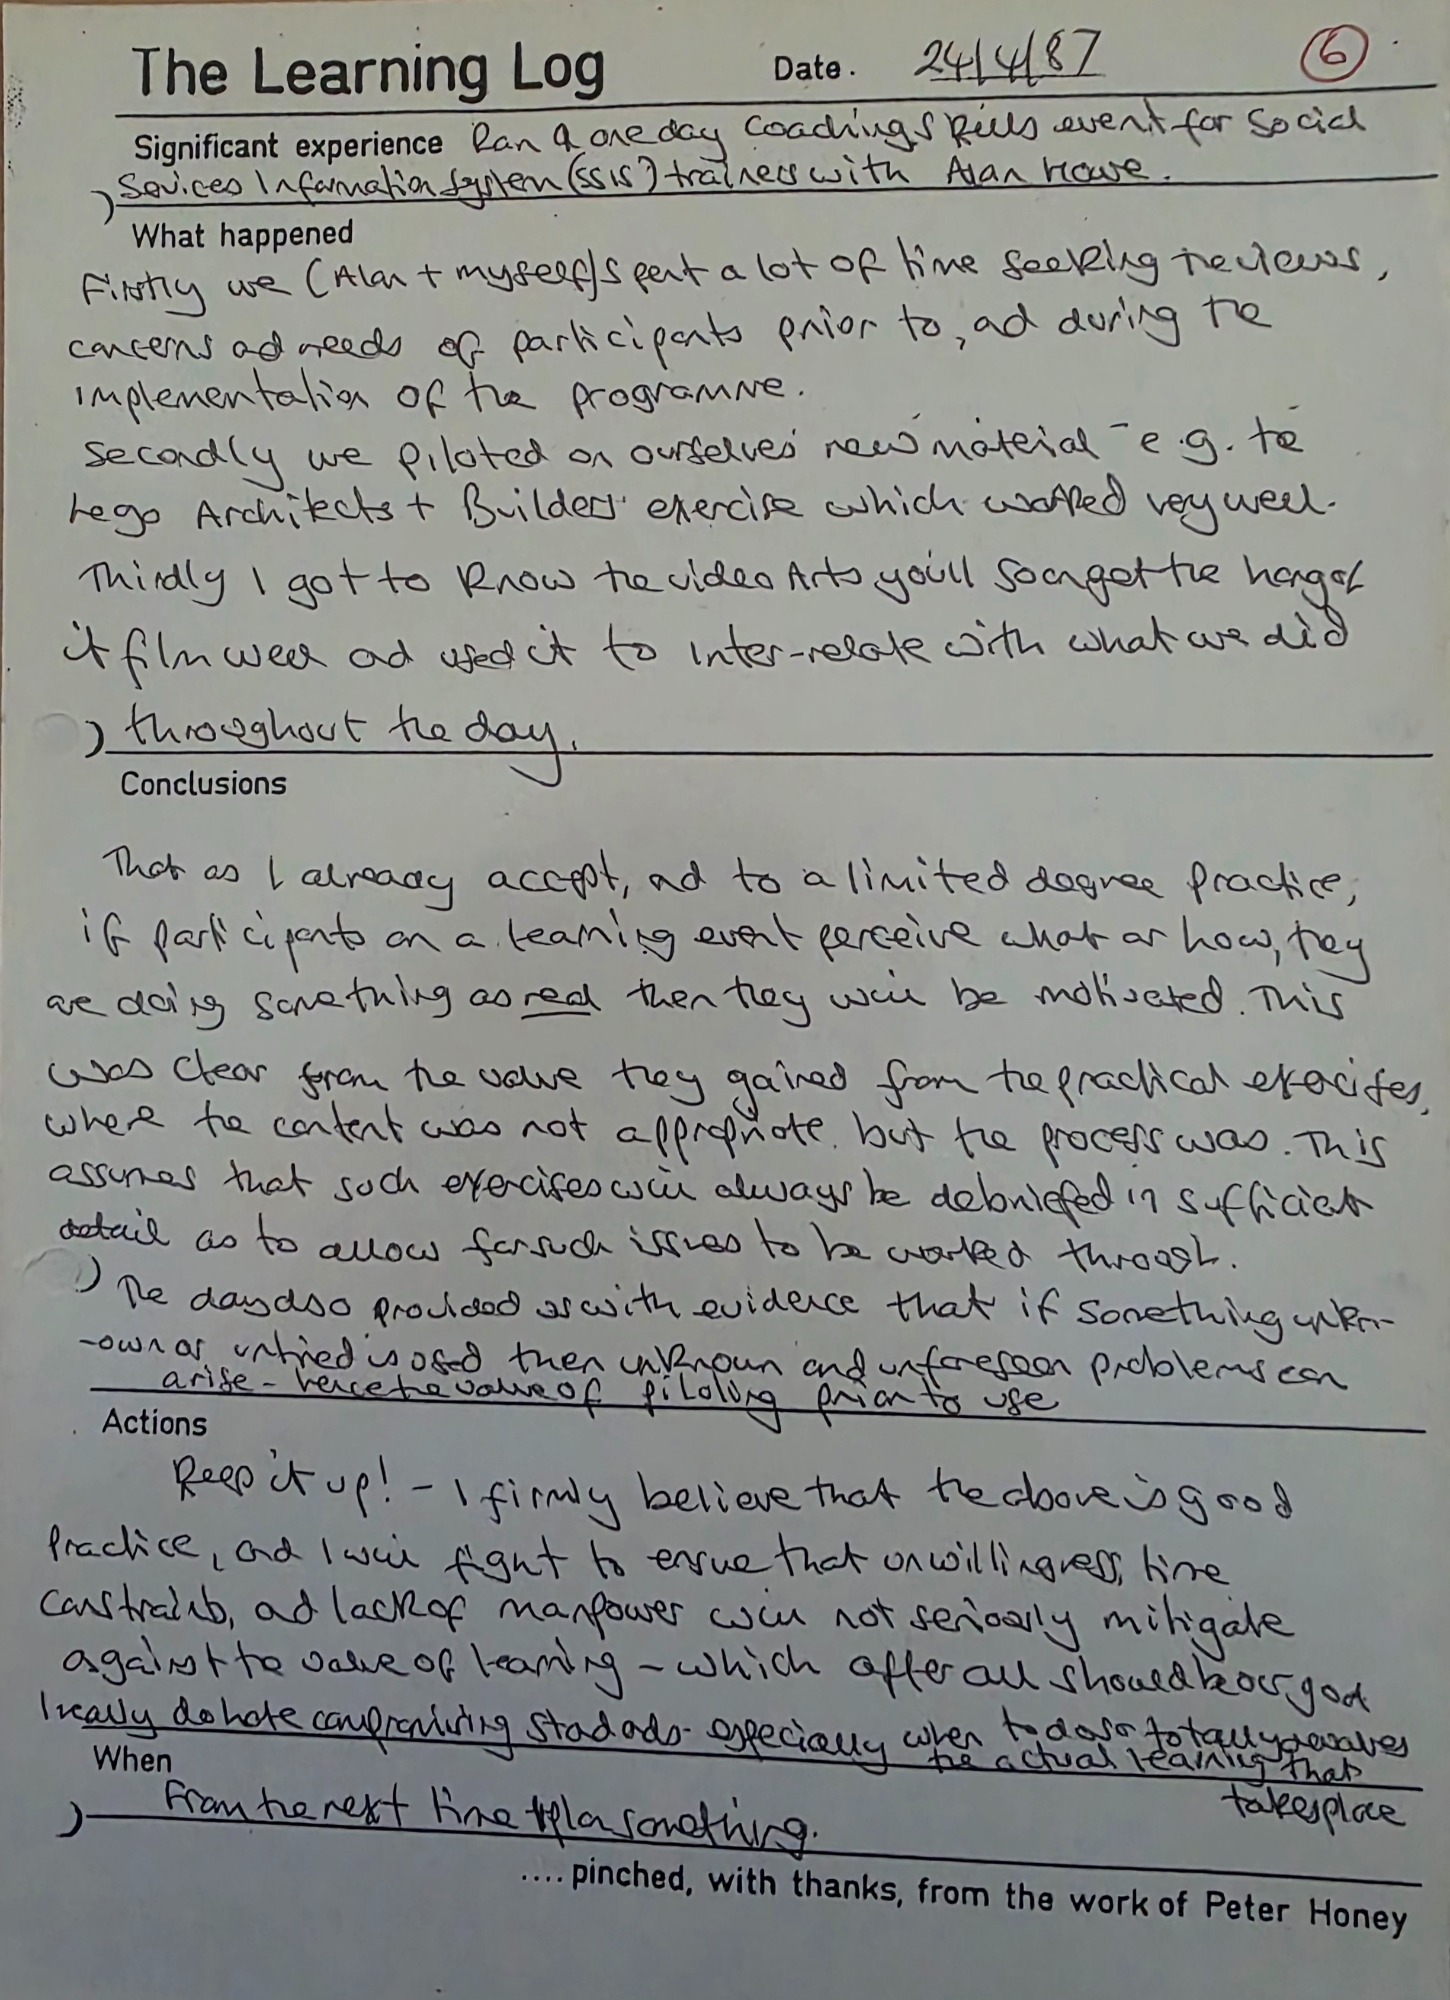 The Learning Log Date. 24/4/87 6
Significant experience Ran a one day Coaching Skills event for Social
Services Information System (SSIS) trainers with Alan Howe.
What happened
Firstly we (Alan + myself) spent a lot of time seeking the views,
concerns ad needs of participants prior to, ad during the
implementation of the programme.
Secondly we piloted on ourselves new material - e.g. the
Lego Architects + Builders exercise which worked very well.
Thirdly I got to know the video Arts you'll soon get the hang of
it film well ad used it to inter-relate with what we did
throughout the day.
Conclusions
That as I already accept, ad to a limited degree practice,
if participants on a learning event perceive what or how, they
are doing something as real then they will be motivated. This
was clear from the value they gained from the practical exercises,
where the content was not appropriate but the process was. This
assumes that such exercises will always be debriefed in sufficient
detail as to allow for such issues to be worked through.
The day also provided us with evidence that if something unkn-
-own or untried is used then unknown and unforeseen problems can
arise - hence the value of piloting prior to use
Actions
Keep it up! - I firmly believe that the above is good
practice, and I will fight to ensure that unwillingness, time
constraints, ad lack of manpower will not seriously mitigate
against the value of learning - which after all should be our goal
I really do hate compromising standards - especially when to do so totally devalues
the actual learning that
takes place
When
From the next time I plan something.
.... pinched, with thanks, from the work of Peter Honey